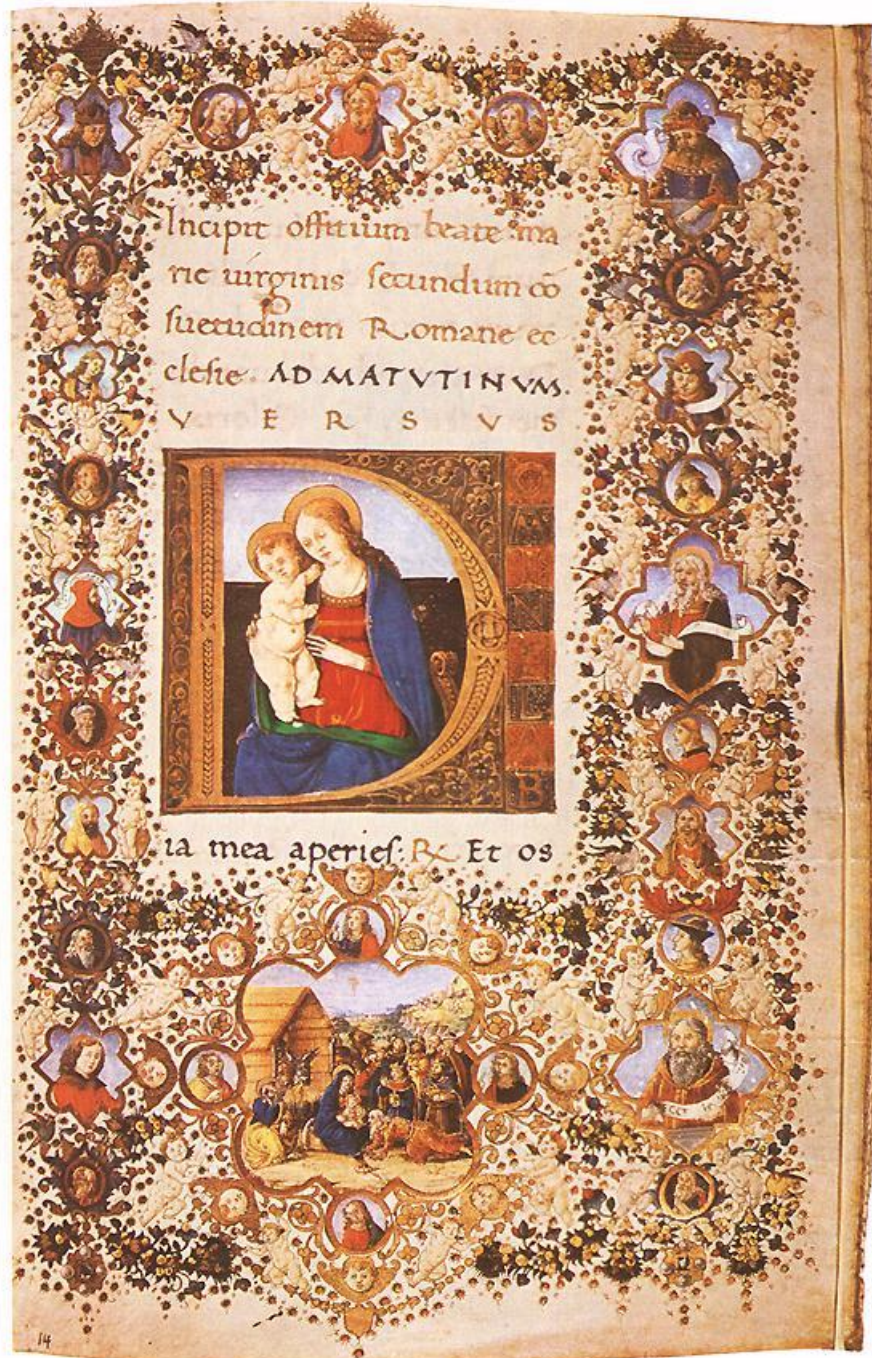 Incipit offitium beate ma
rie uirginis secundum cō
suetudinem Romane ec
clesie. AD MATVTINVM.
V E R S V S
D
O
M
I
N
E
L
A
B
ia mea aperies: ℟ Et os
14